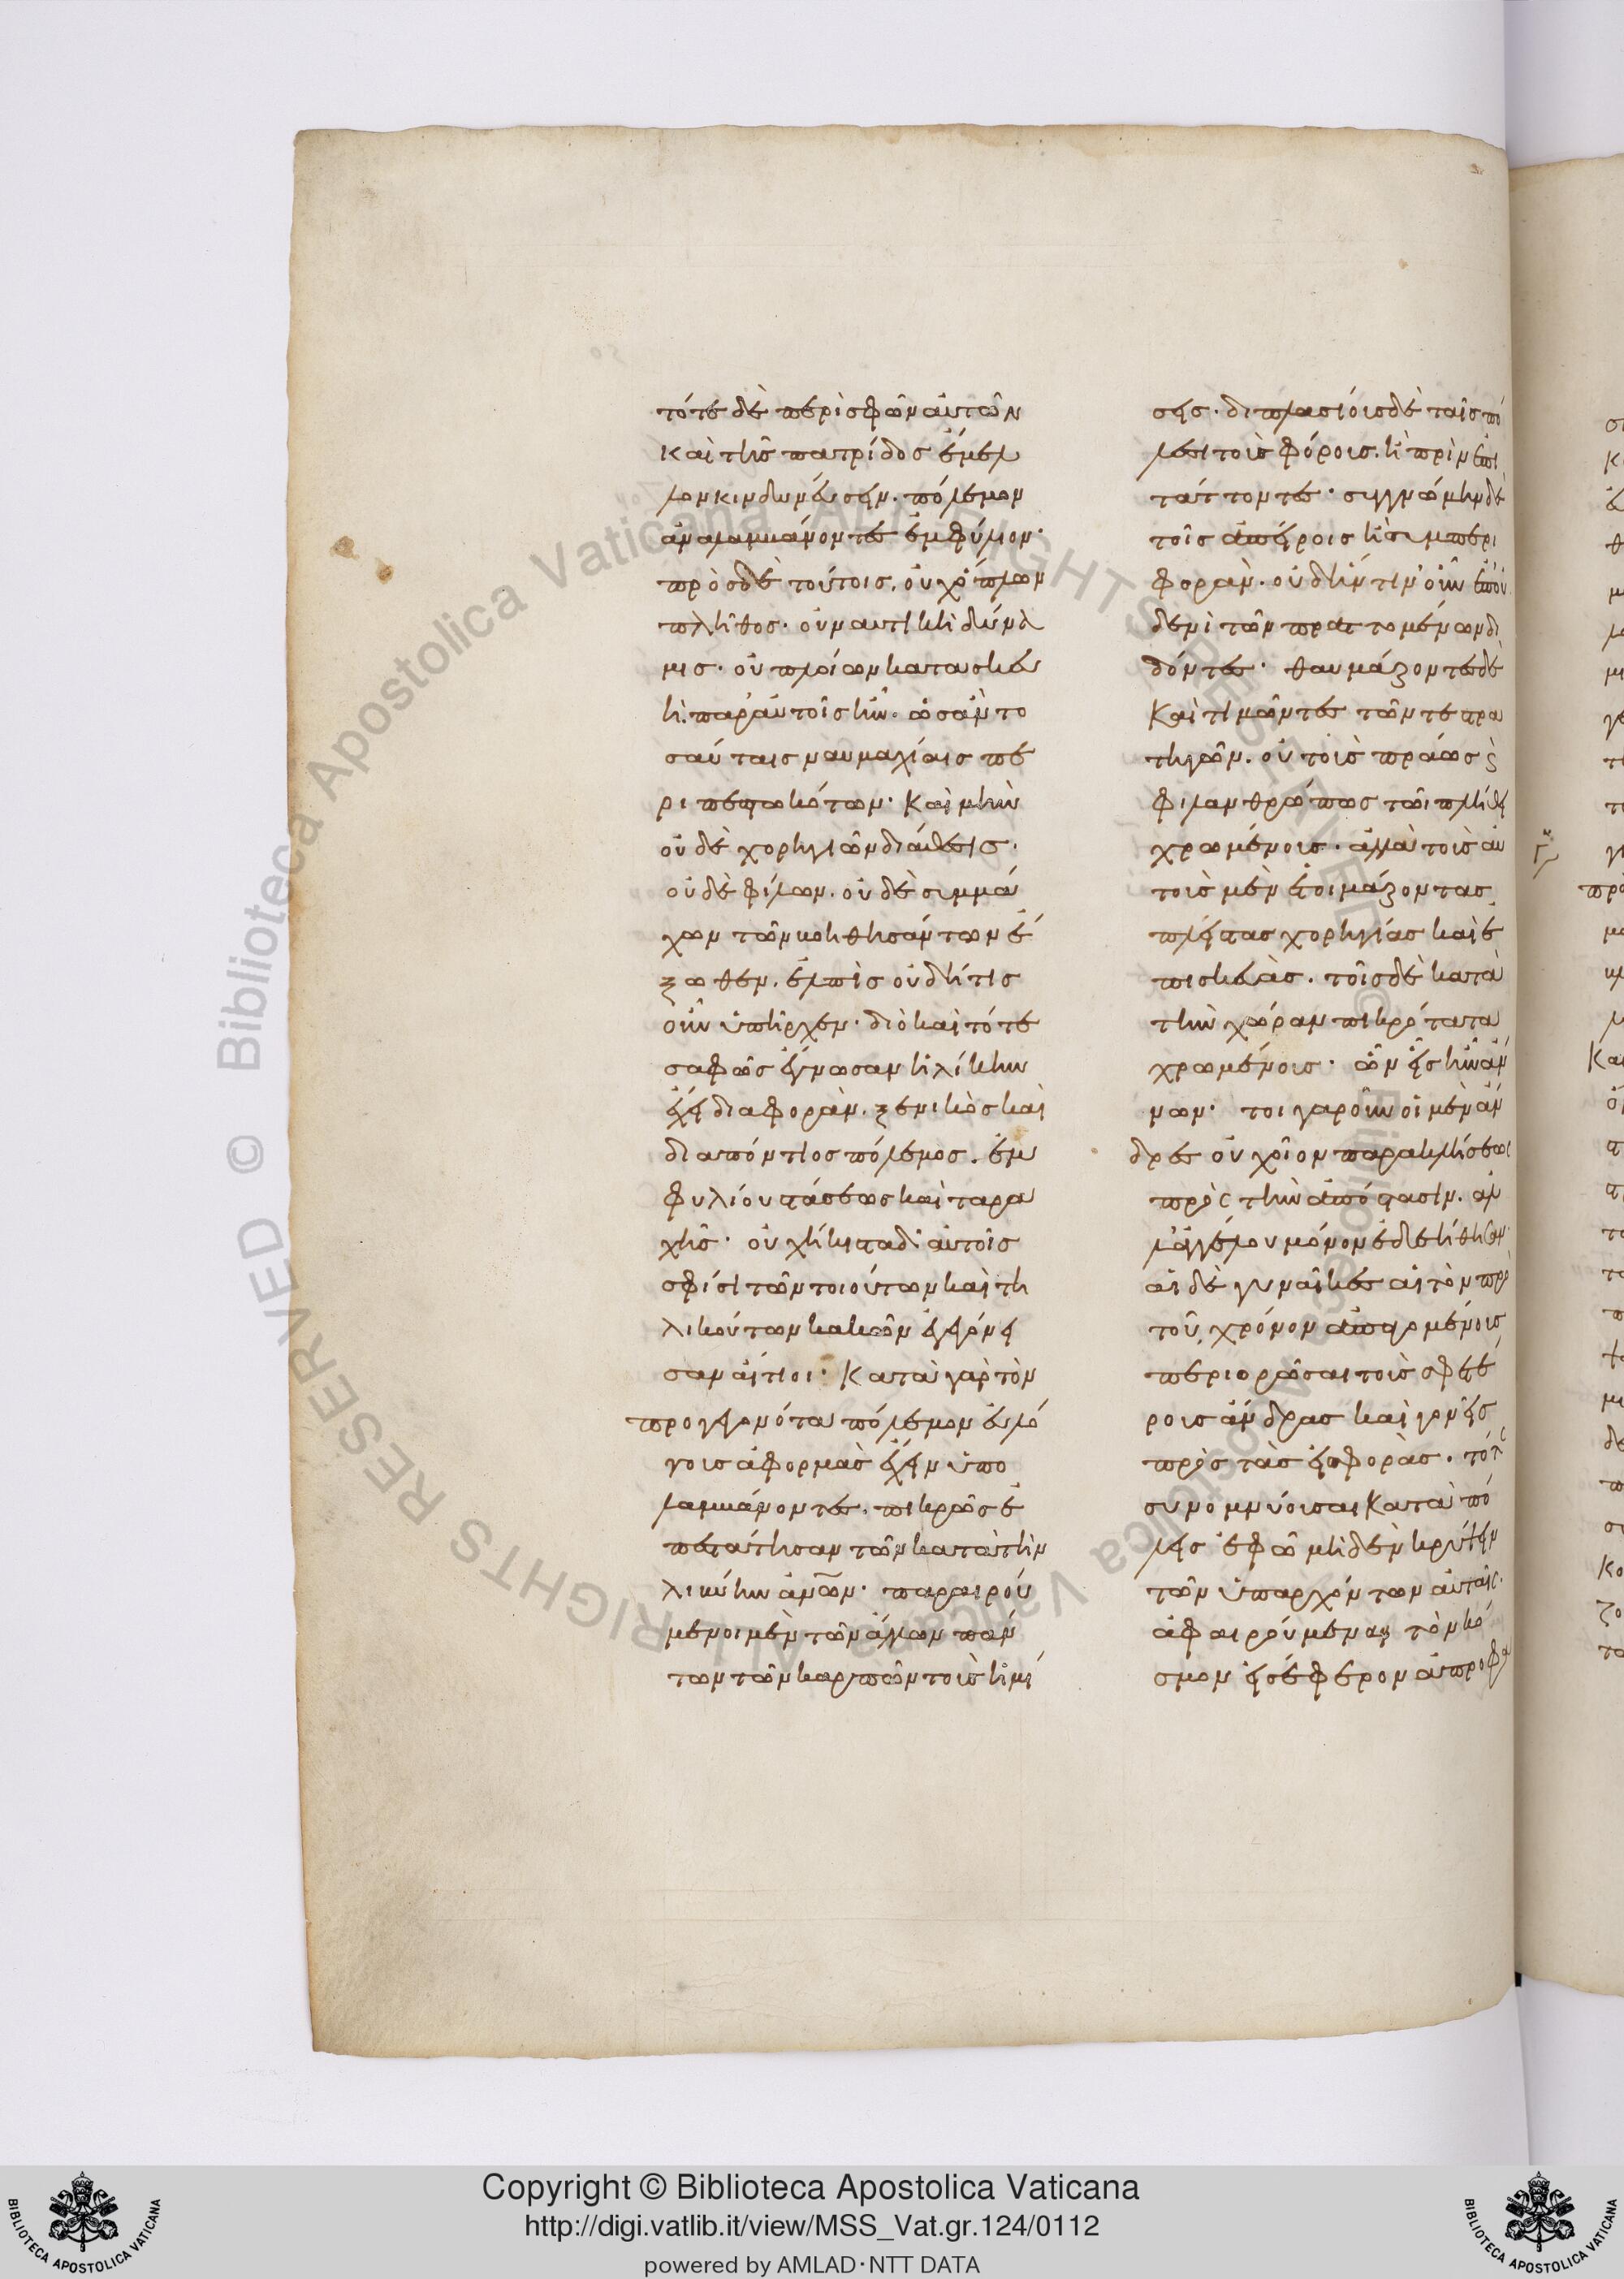 τότε δὲ περὶ σφῶν αὐτῶν
καὶ τῆς πατρίδος ἔμελ
λον κινδυνεύσειν. πόλεμον
ἀναλαμβάνοντες ἐμφύλιον·
πρὸς δὲ τούτοις, οὐχ ὅπλων
πλῆθος· οὐ ναυτικὴ δύνα
μις· οὐ πλοίων κατασκευ
ὴ· παρ' αὐτοῖς ἦν· ὡς ἂν το
σαύταις ναυμαχίαις πε
ριπεπτωκότων· καὶ μὴν
οὐδὲ χορηγιῶν διάθεσις·
οὐδὲ φίλων. οὐδὲ συμμά
χων τῶν βοηθησάντων ἔ
ξωθεν. ἐλπὶς οὐδ' ἥτις
οὖν ὑπῆρχεν· διὸ καὶ τότε
σαφῶς ἔγνωσαν ἡλίκην
ἔχει διαφορὰν. ξενικὸς καὶ
διαπόντιος πόλεμος. ἐμ
φυλίου στάσεως καὶ ταρα
χῆς· οὐχ ἥκιστα δ' αὐτοῖς
σφίσι τῶν τοιούτων καὶ τη
λικούτων κακῶν ἐγεγόνει
σαν αἴτιοι· Κατὰ γὰρ τὸν
προγεγονότα πόλεμον εὐλό
γους ἀφορμὰς ἔχειν ὑπο
λαμβάνοντες. πικρῶς ἐ
πεστάτησαν τῶν κατὰ τὴν
λιβύην ἀνων· παραιρού
μενοι μὲν τῶν ἄλλων πάν
των τῶν καρπῶν τοὺς ἡμί
σεις. διπλασίους δὲ ταῖς πό
λεσι τοὺς φόρους. ἢ πρὶν ἐπι
τάττοντες· συγγνώμην δὲ
τοῖς ἀπόροις ἢ συμπερι
φορὰν. οὐδ' ἥντιν' οὖν ἐπ' οὐ
δενὶ τῶν πραττομένων δι
δόντες· θαυμάζοντες δὲ
καὶ τιμῶντες τῶν στρα
τηγῶν. οὐ τοὺς πράως ϗ
φιλανθρώπως τῶι πλήθει
χρωμένους. ἀλλὰ τοὺς αὐ
τοῖς μὲν ἑτοιμάζοντας
πλείστας χορηγίας καὶ ἐ
πισκευὰς. τοῖς δὲ κατὰ
τὴν χώραν πικρότατα
χρωμένους· ὧν εἷς ἦν ἄν
νων· τοιγαροῦν οἱ μὲν ἄν
δρες οὐχ οἷον παρακλήσεως
πρὸς τὴν ἀπόστασιν. ἀλ
λ' ἀγγέλου μόνον ἐδεήθησαν·
αἱ δὲ γυναῖκες αἱ τὸν πρὸ
τοῦ χρόνον ἀπαγομένους
περιορῶσαι τοὺς σφετέ
ρους ἄνδρας καὶ γονεῖς
πρὸς τὰς εἰσφορὰς. τότε
συνομνύουσαι κατὰ πό
λεις ἐφ' ᾧ μηδὲν κρύψειν
τῶν ὑπαρχόντων αὐταῖς.
ἀφαιρούμεναι τὸν κό
σμον εἰσέφερον ἀπροφα